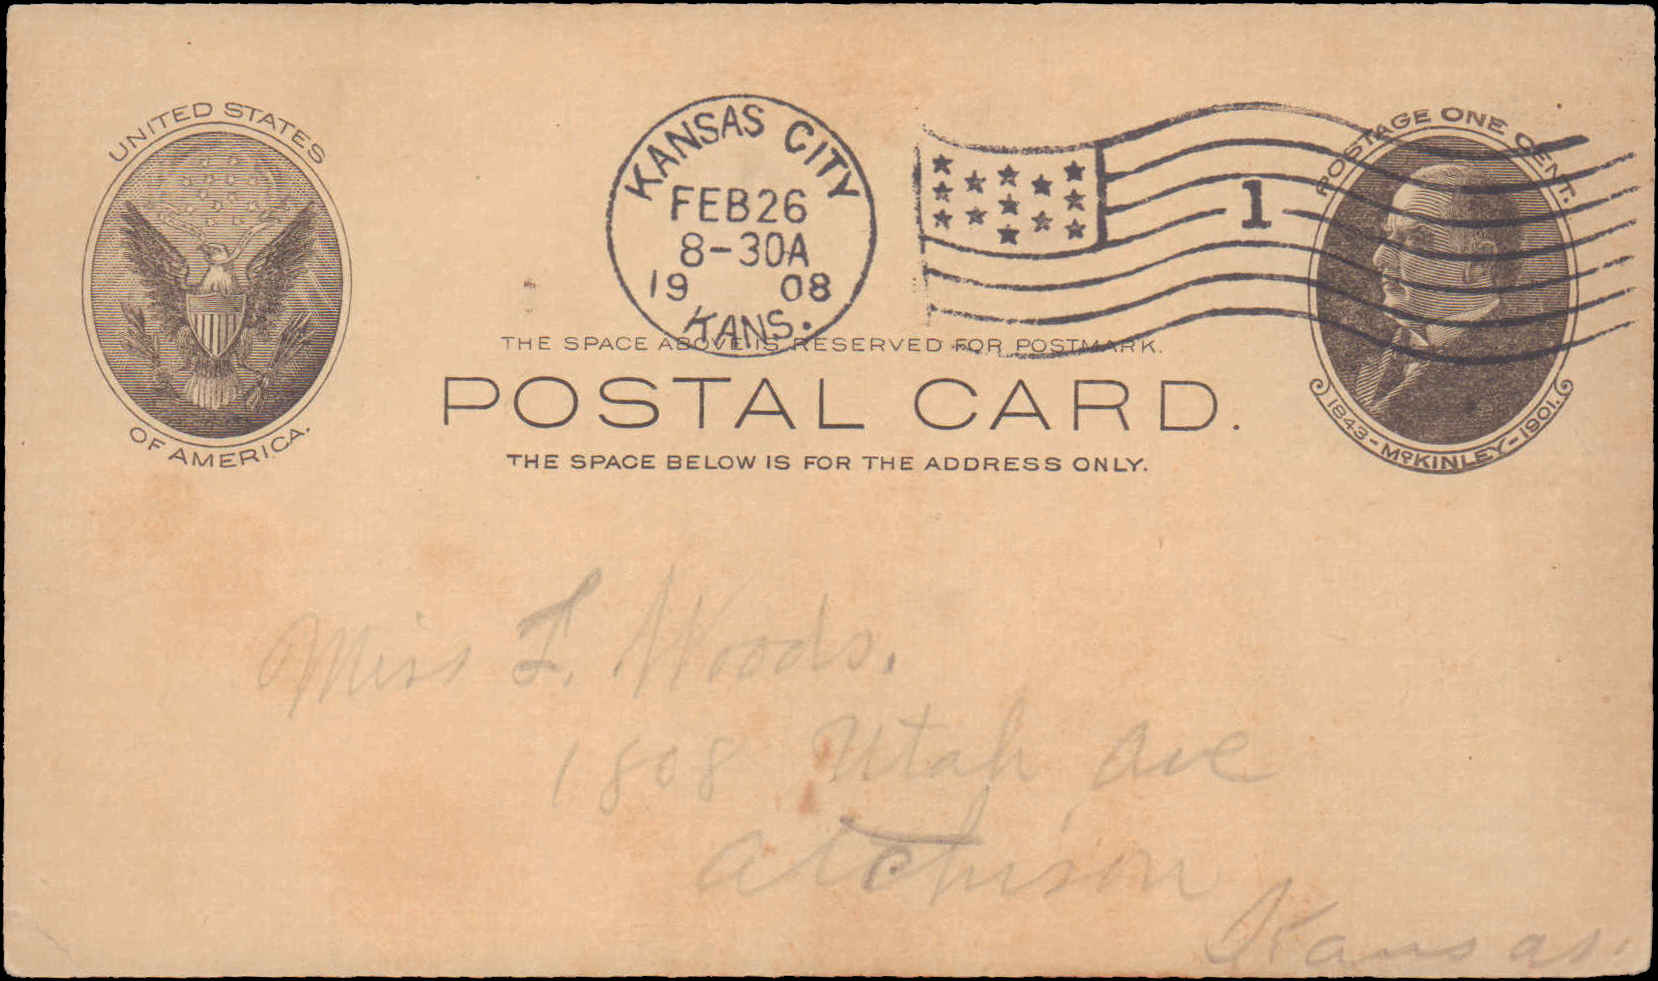 UNITED STATES
OF AMERICA.
KANSAS CITY
FEB 26
8-30A
1908
KANS.
1
POSTAGE ONE CENT.
1843-McKINLEY-1901.
THE SPACE ABOVE IS RESERVED FOR POSTMARK.
POSTAL CARD.
THE SPACE BELOW IS FOR THE ADDRESS ONLY.
Miss L. Woods.
1808 Utah Ave
Atchison
Kansas.